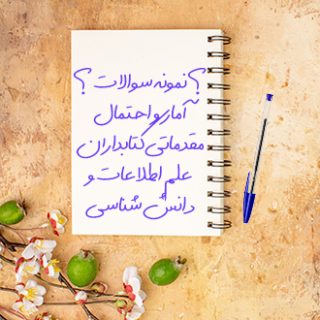 ؟ نمونه سوالات ؟
آمار و احتمال
مقدماتی کتابداران
علم اطلاعات و
دانش شناسی